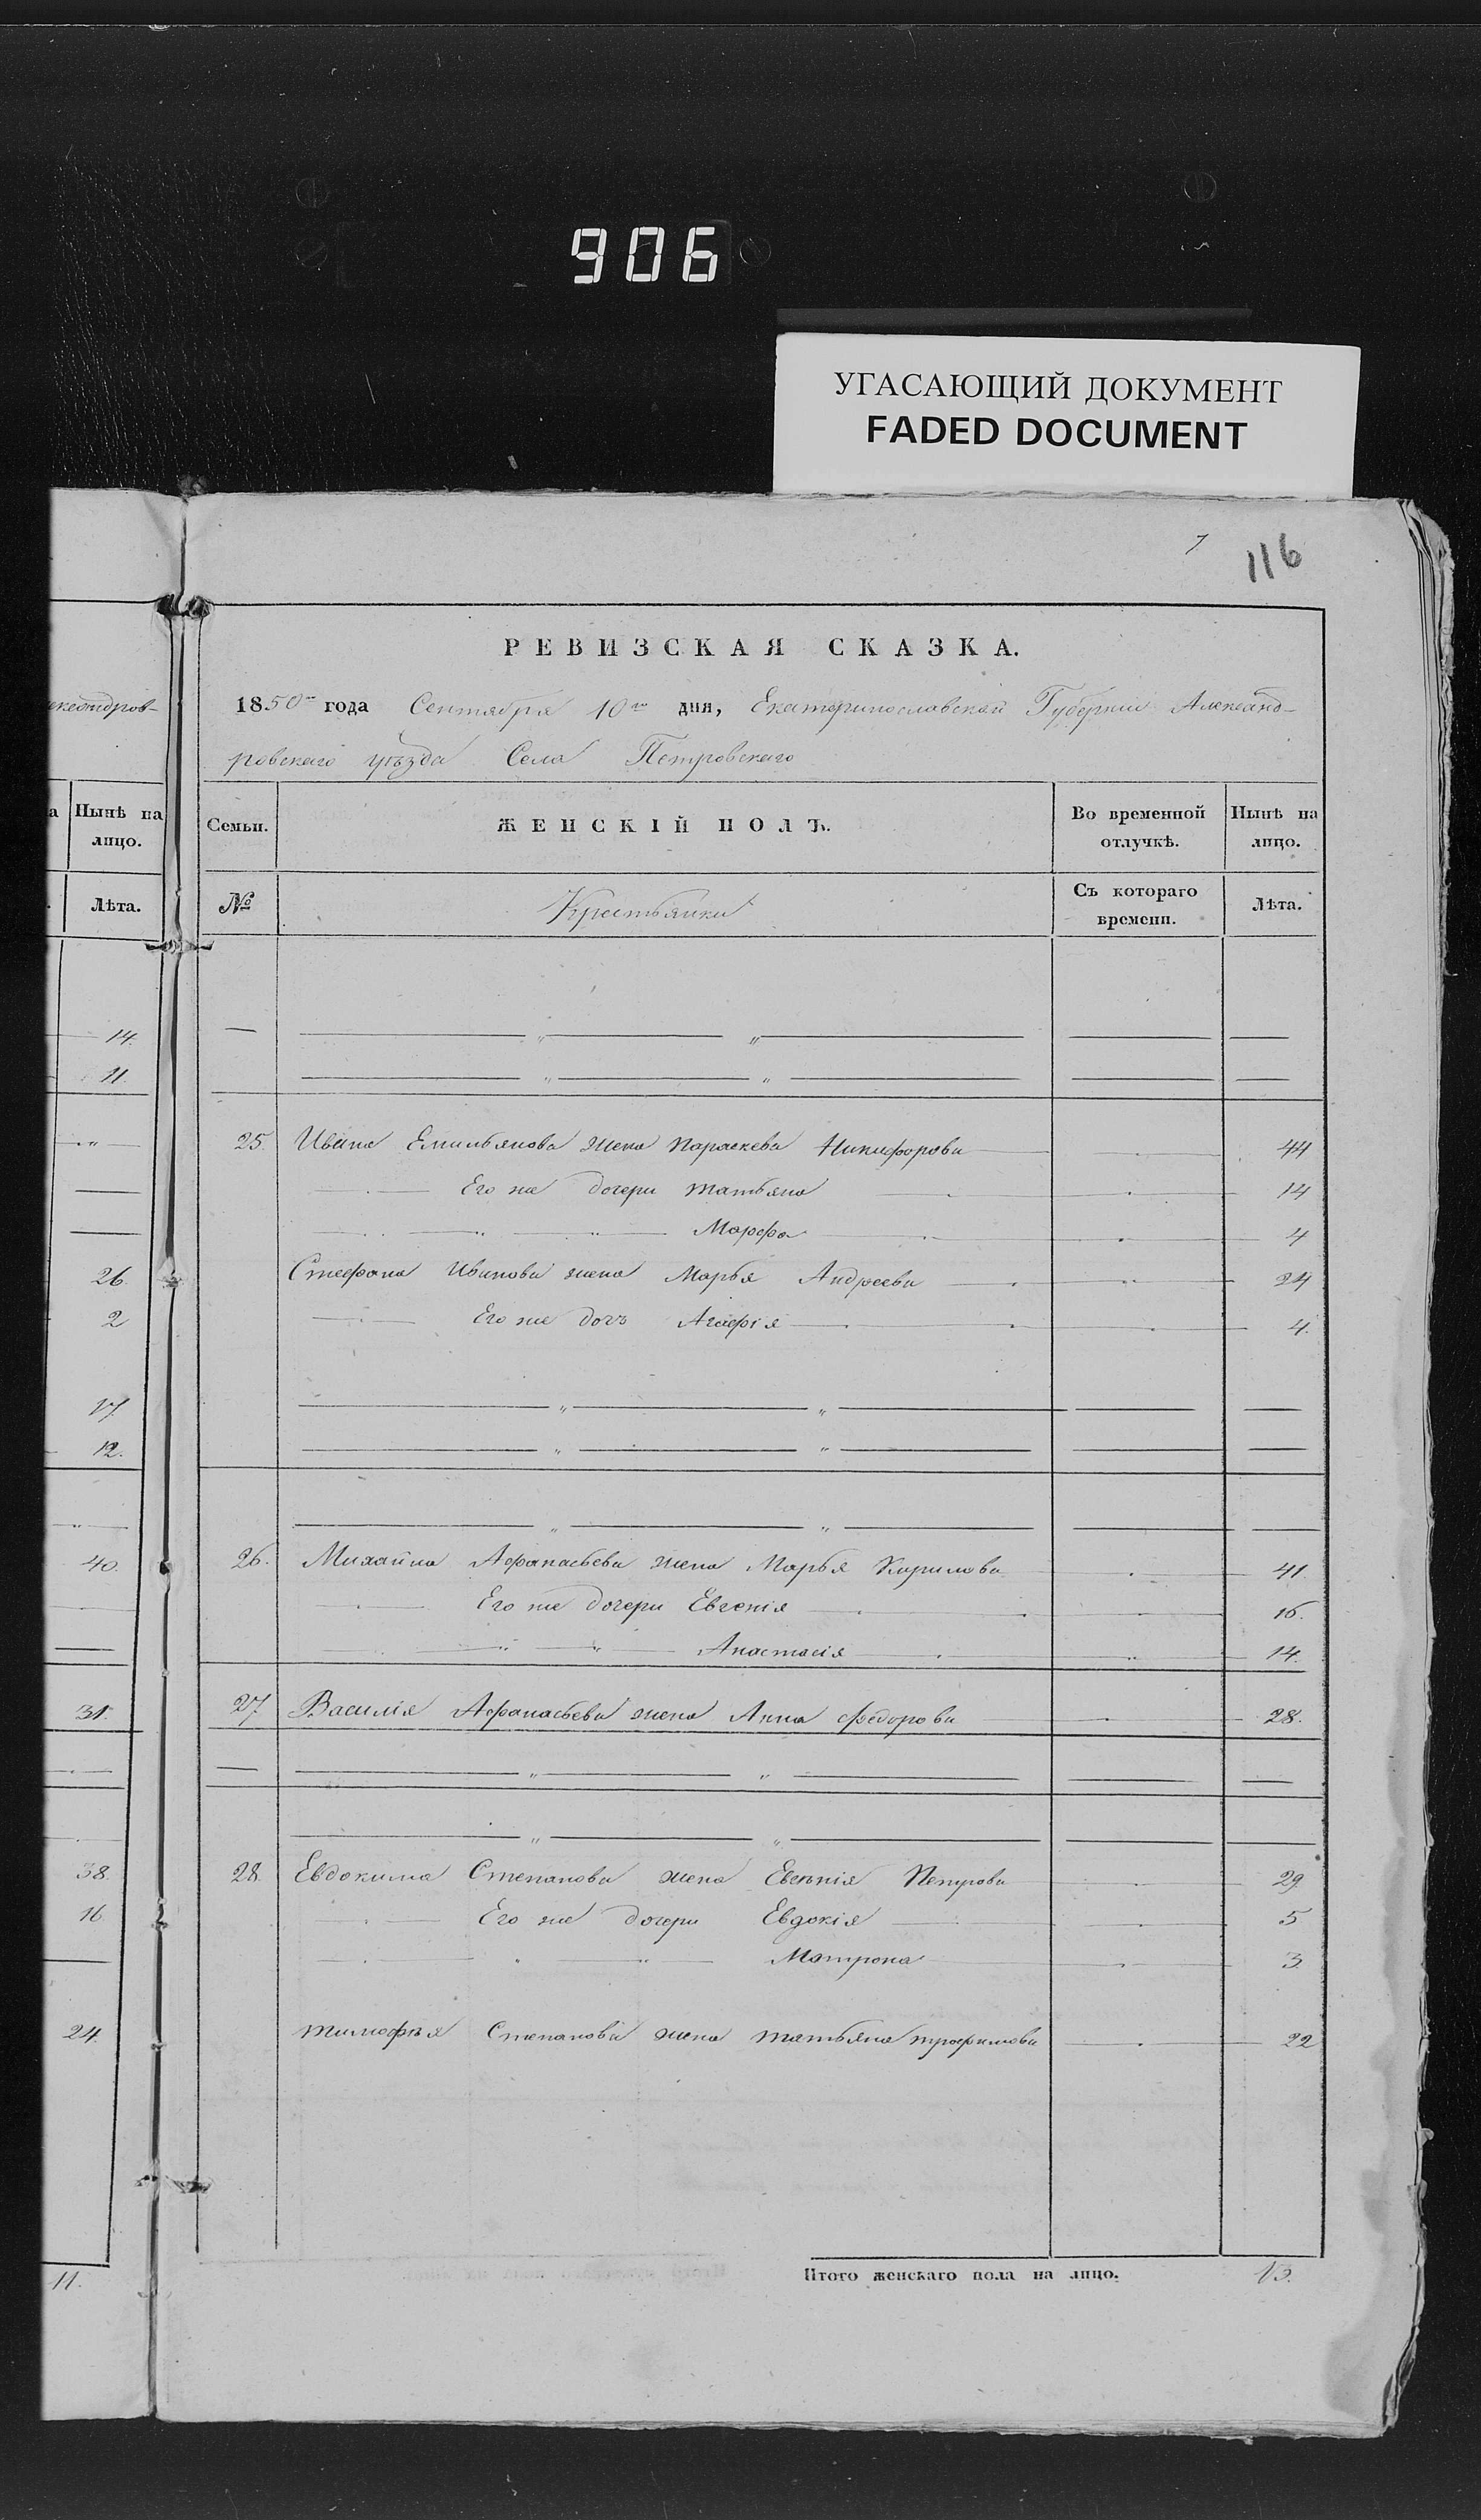 906
УГАСАЮЩИЙ ДОКУМЕНТ
FADED DOCUMENT
7 116
РЕВИЗСКАЯ СКАЗКА.
1850го года Сентября 10го дня, Екатеринославской Губерніи Александ-
ровскаго уѣзда Села Петровскаго
Нынѣ на лицо.
Лѣта.
14.
11.
26.
2
17.
12.
40.
31.
38.
16.
24.
11.
Семьи. ЖЕНСКІЙ ПОЛЪ. Во временной отлучкѣ. Нынѣ на лицо.
№ Крестьянки Съ котораго времени. Лѣта.
25. Ивана Емильянова жена Параскева Никифорова 44
Его же дочери Татьяна 14
Марфа 4
Стефана Иванова жена Марья Андреева 24
Его же дочъ Агафія 4.
26. Михайла Афанасьева жена Марья Кирилова 41.
Его же дочери Евгенія 16.
Анастасія 14.
27 Василія Афанасьева жена Анна Федорова 28.
28. Евдокима Степанова жена Евгенія Петрова 29
Его же дочери Евдокія 5
Матрона 3
Тимофѣя Степанова жена Татьяна Трофимова 22
Итого женскаго пола на лицо. 13.